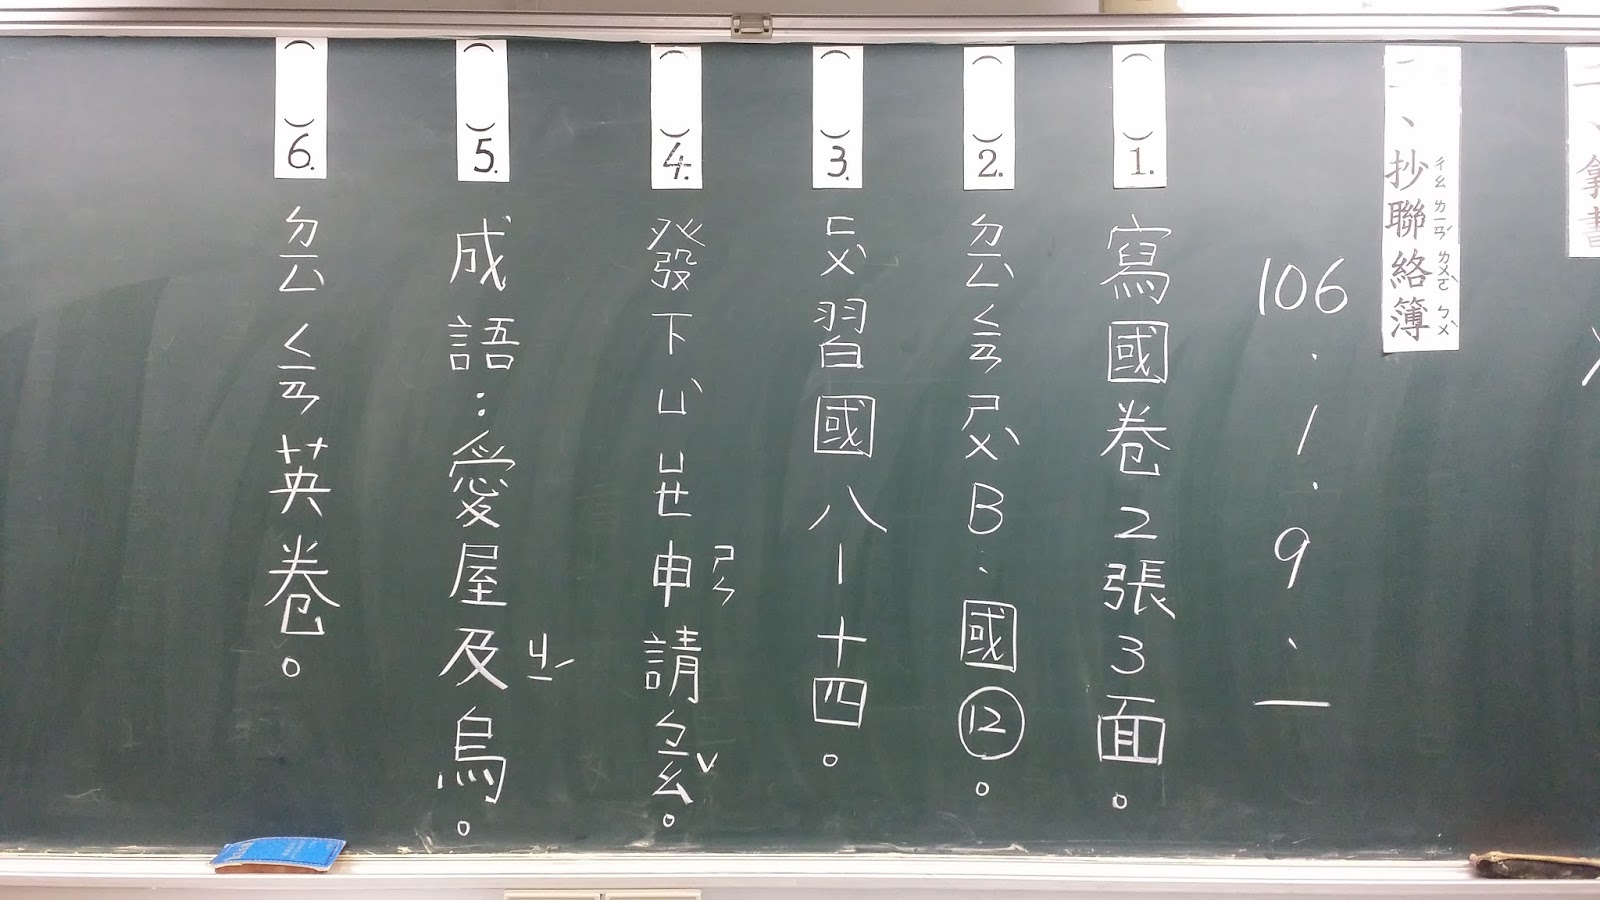 拿書
二、抄聯絡簿
ㄔㄠ ㄌㄧㄢˊ ㄌㄨㄛˋ ㄅㄨˋ
106.1.9.一
( )1.寫國卷2張3面。
( )2.ㄉㄧㄥˋㄑㄧㄢㄕㄨˋB.國⑫。
( )3.ㄈㄨˋ習國八-十四。
( )4.發下ㄩˋㄩㄝ申ㄕㄣ請ㄅㄧㄠˇ。
( )5.成語:愛屋及ㄐㄧˊ烏。
( )6.ㄉㄧㄥˋㄑㄧㄢ英卷。